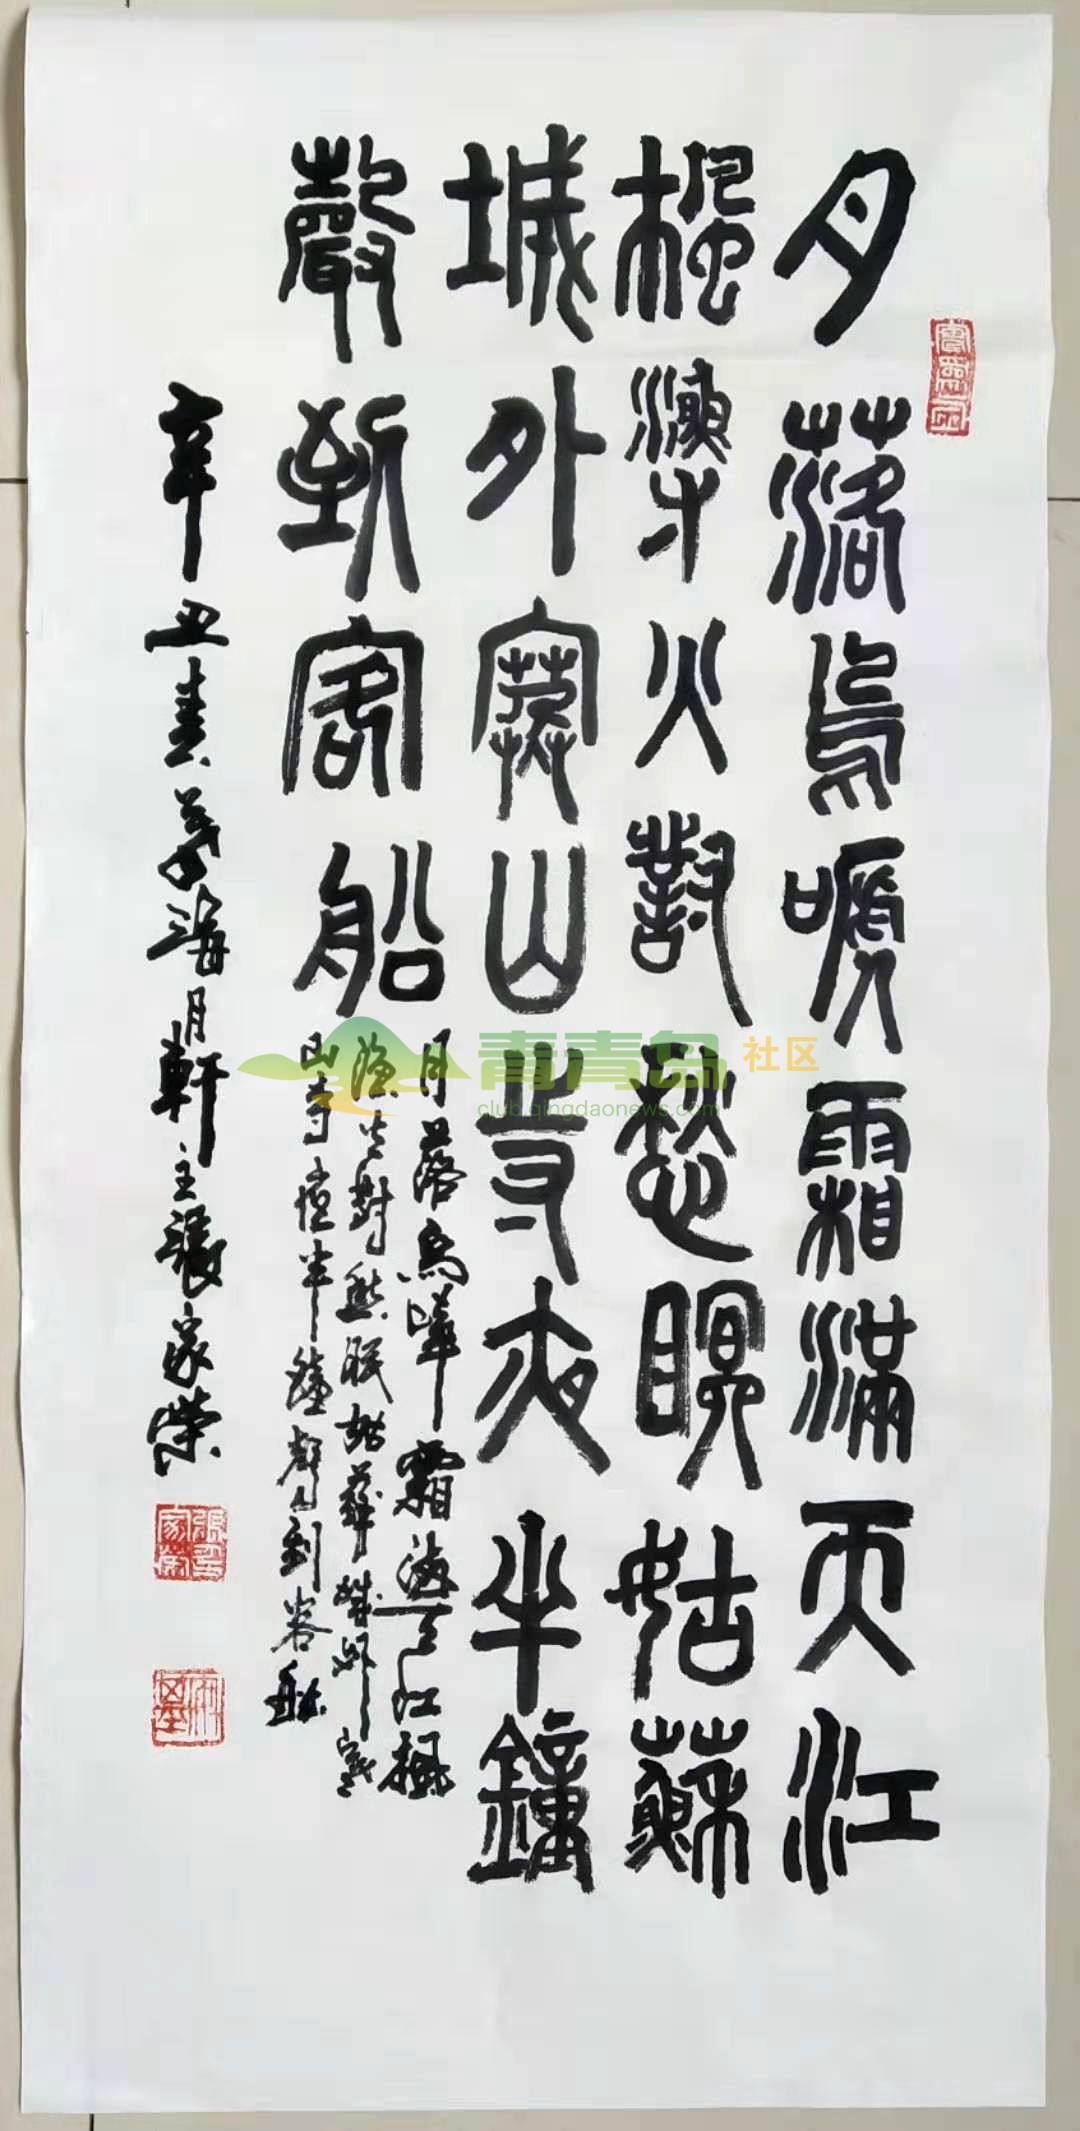 月落烏啼霜滿天江
楓漁火對愁眠姑蘇
城外寒山寺夜半鐘
聲到客船
月落烏啼霜滿天江楓
漁火對愁眠姑蘇城外寒
山寺夜半鐘聲到客船
辛丑春月於海月軒主張家榮
青青岛社区
club.qingdaonews.com